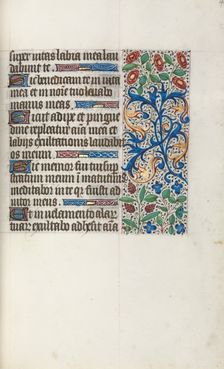 super vitas labia mea lau
dabunt te.
Sic benedicam te in vita
mea et in noie tuo levabo
manus meas.
Sicut adipe et pingue
dine repleatur aīa mea et
labijs exultationis laudabit
os meum.
Si memor fui tui sup
stratum meum ī matutinis
meditabor in te qr fuisti ad
iutor meus.
Et in velamento alar
tuar exultabo adhesit aīa